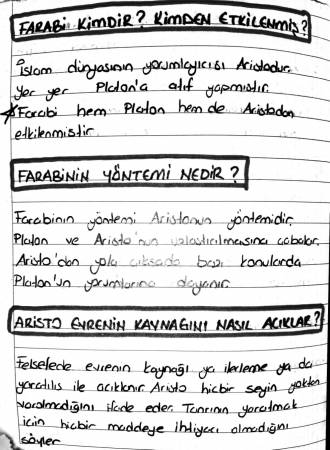 FARABİ KİMDİR? KİMDEN ETKİLENMİŞ?
İslam dünyasının yorumlayıcısı Aristodur.
Yer yer Platon'a atıf yapmıştır.
Farabi hem Platon hem de Aristodan
etkilenmiştir.
FARABİNİN YÖNTEMİ NEDİR?
Farabinin yöntemi Aristonun yöntemidir.
Platon ve Aristo'nun uzlaştırılmasına çabalar.
Aristo'dan yola çıksada bazı konularda
Platon'un yorumlarına dayanır.
ARİSTO EVRENİN KAYNAĞINI NASIL AÇIKLAR?
Felsefede evrenin kaynağı ya ilerleme ya da
yaratılış ile açıklanır. Aristo hiçbir şeyin yoktan
varolmadığını ifade eder. Tanrının yaratmak
için hiçbir maddeye ihtiyacı olmadığını
söyler